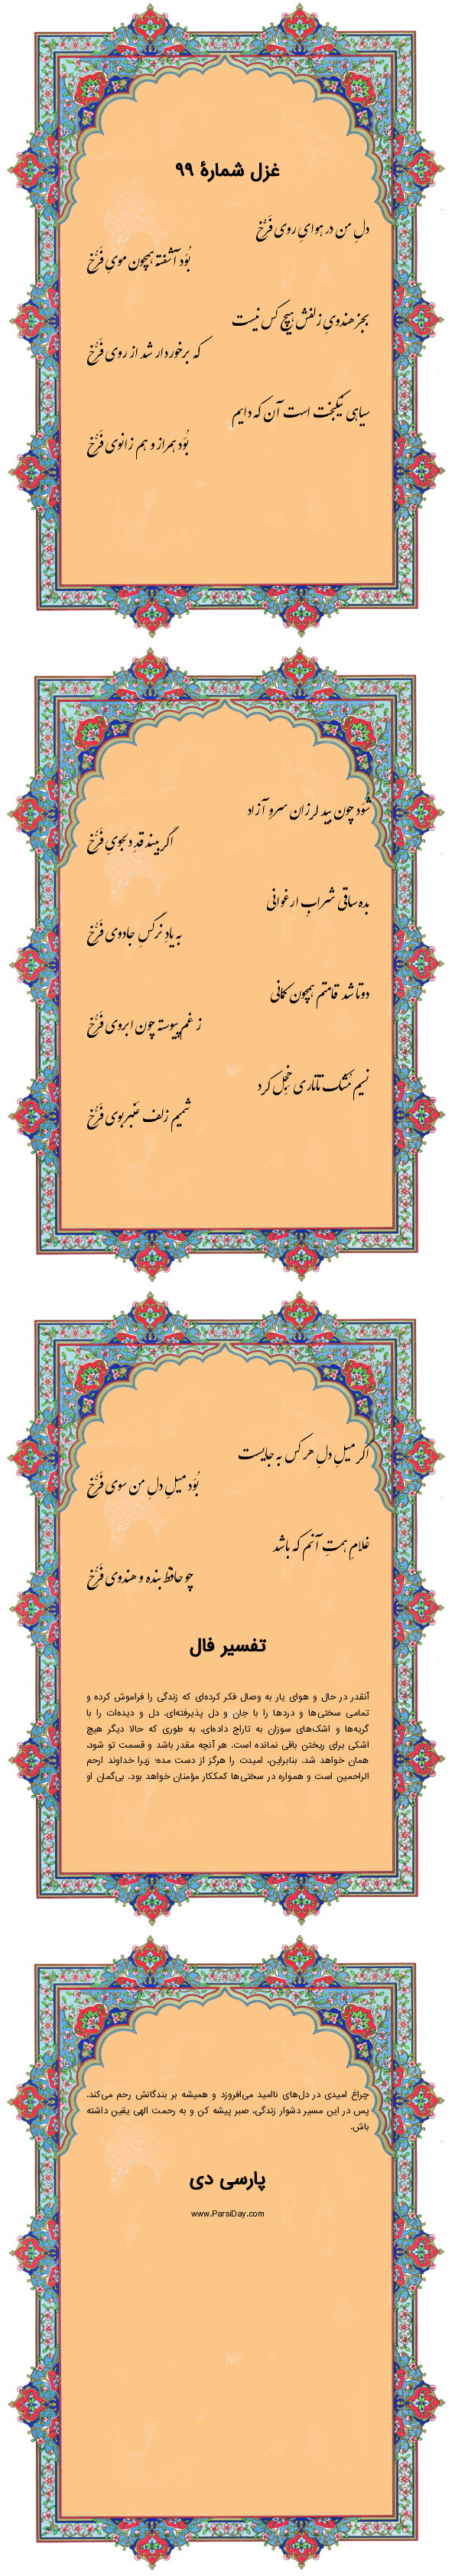 غزل شمارهٔ ۹۹
دلِ من در هوایِ روی فَرُّخ
بُوَد آشفته همچون مویِ فَرُّخ
بجز هندویِ زلفش هیچ کس نیست
که برخوردار شد از روی فَرُّخ
سیاهی نیکبخت است آن که دایم
بُوَد همراز و هم زانوی فَرُّخ
شَوَد چون بید لرزان سرو آزاد
اگر بیند قدِ دلجویِ فَرُّخ
بده ساقی شرابِ ارغوانی
به یادِ نرگسِ جادوی فَرُّخ
دوتا شد قامتم همچون کمانی
ز غم پیوسته چون ابروی فَرُّخ
نسیم مُشک تاتاری خَجِل کرد
شمیم زلف عَنبربوی فَرُّخ
اگر میلِ دلِ هر کس به جایست
بُوَد میلِ دلِ من سوی فَرُّخ
غلامِ همتِ آنم که باشد
چو حافظ بنده و هندوی فَرُّخ
تفسیر فال
آنقدر در حال و هوای یار به وصال فکر کرده‌ای که زندگی را فراموش کرده و
تمامی سختی‌ها و دردها را با جان و دل پذیرفته‌ای. دل و دیده‌ات را با
گریه‌ها و اشک‌های سوزان به تاراج داده‌ای، به طوری که حالا دیگر هیچ
اشکی برای ریختن باقی نمانده است. هر آنچه مقدر باشد و قسمت تو شود،
همان خواهد شد. بنابراین، امیدت را هرگز از دست مده؛ زیرا خداوند ارحم
الراحمین است و همواره در سختی‌ها کمککار مؤمنان خواهد بود. بی‌گمان او
چراغ امیدی در دل‌های ناامید می‌افروزد و همیشه بر بندگانش رحم می‌کند.
پس در این مسیر دشوار زندگی، صبر پیشه کن و به رحمت الهی یقین داشته
باش.
پارسی دی
www.ParsiDay.com